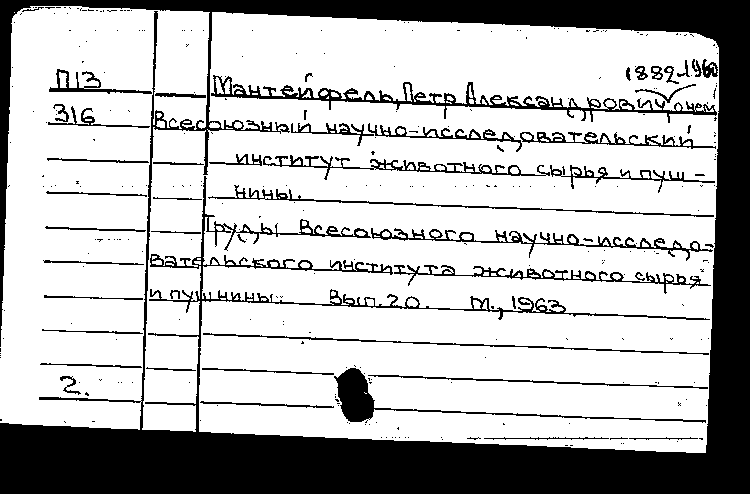 1882-1960
П13 Мантейфель, Петр Александрович, о нем
316 Всесоюзный научно-исследовательский
институт животного сырья и пуш-
нины.
Труды Всесоюзного научно-исследо-
вательского института животного сырья
и пушнины. Вып. 20. М., 1963
2.